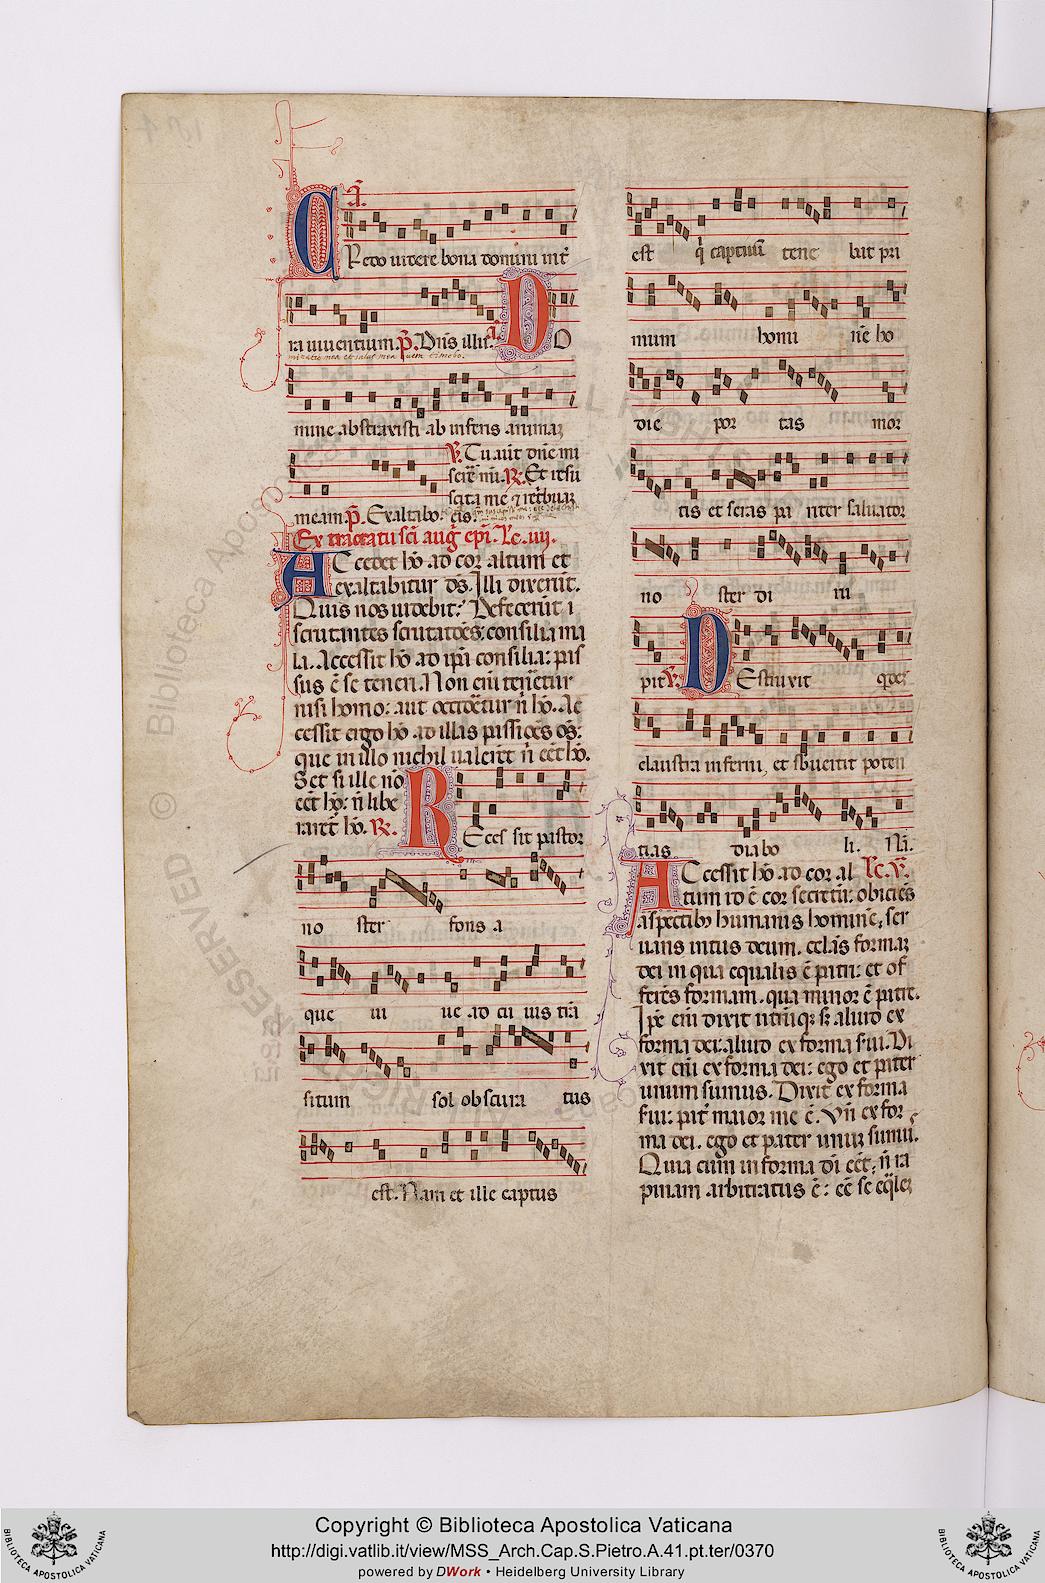 A.
Credo videre bona domini in t̃
ra viventium. p̃. Dñs illu. A. Do
minatio mea et salus mea quem timebo.
mine abstraxisti ab inferis animaʒ
meam. p̃. Exaltabo.
V. Tu aut̃ dñe mi
serere m̃i. R. Et resu
scita me ⁊ retbuaʒ
eis.
Ex tractatu sc̃i aug̃ ep̃i. Lc̃. iiij.
Accedet hõ ad cor altum et
exaltabitur ds̃. Illi dixerũt.
Quis nos videbit? Defecerũt
scrutantes scrutatões: consilia ma
la. Accessit hõ ad ip̃a consilia: pas
sus ẽ se teneri. Non eñi teneretur
nisi homo: aut occideretur ñ hõ. Ac
cessit ergo hõ ad illas passiões oẽs:
que in illo nichil valerẽt ñ eẽt hõ.
Set si ille nõ
eẽt hõ: ñ libe
raret̃ hõ. R.
Recessit pastor
noster fons a
que vi ve ad cu ius trã
situm sol obscura tus
est. Nam et ille captus
est q̃ captivũ tene bat pri
mum homi nẽ ho
die por tas mor
tis et seras pa riter salvator
no ster di ru
pit V. Destruxit qdeʒ
claustra inferni, et sbvertit poten
tias diabo li. Nã.
Accessit hõ ad cor al Lc̃. V.
tum id ẽ cor secretũ: obiciẽs
aspectib̃ humanis hominẽ, ser
vans intus deum. celãs formaʒ
dei in qua equalis ẽ patri: et of
ferẽs formam. qua minor ẽ patre.
Ip̃e eñi dixit utrũq; sʒ aliud ex
forma dei: aliud ex forma s̃vi. Di
xit eñi ex forma dei: ego et pater
unum sumus. Dixit ex forma
s̃vi: pat̃ maior me ẽ. Vñ ex for
ma dei. ego et pater unuʒ sumus.
Quia cum in forma dĩ eẽt: ñ ra
pinam arbitratus ẽ: eẽ se eqʳleʒ
Copyright © Biblioteca Apostolica Vaticana
http://digi.vatlib.it/view/MSS_Arch.Cap.S.Pietro.A.41.pt.ter/0370
powered by DWork • Heidelberg University Library
BIBLIOTECA APOSTOLICA VATICANA
BIBLIOTECA APOSTOLICA VATICANA